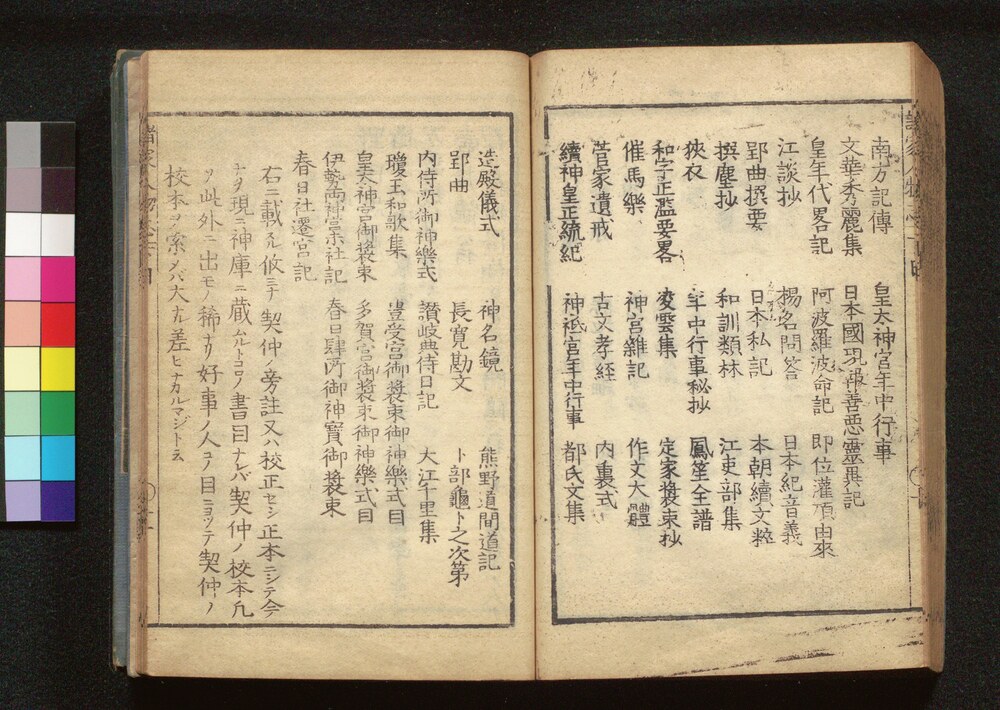 南方記傳　皇太神宮年中行事
文華秀麗集　日本國現報善悪靈異記
皇年代畧記　阿波羅波命記　即位灌頂由來
江談抄　揚名問答　日本紀音義
郢曲撰要　日本私記　本朝續文粹
撰塵抄　和訓類林　江吏部集
狭衣　年中行事秘抄　鳳笙全譜
和字正濫要畧　夌雲集　定家裝束抄
催馬樂　神宮雜記　作文大體
菅家遺戒　古文孝経　内裏式
續神皇正統紀　神祗宮年中行事　都氏文集
造殿儀式　神名鏡　熊野道間道記
郢曲　長寛勘文　卜部龜卜之次第
内侍所御神樂式　讃岐典侍日記　大江千里集
瓊玉和歌集　豊受宮御裝束御神樂式目
皇太神宮御裝束　多賀宮御裝束御神樂式目
伊勢両神宮宗社記　春日肆所御神寳御裝束
春日社遷宮記
右ニ載ル所ミナ契仲ノ旁註又ハ校正セシ正本ニシテ今
ナヲ現ニ神庫ニ蔵ムルトコロノ書目ナレバ契仲ノ校本凡
ソ此外ニ出モノ稀ナリ好事ノ人コノ目ニヨツテ契仲ノ
校本ヲ索メバ大ナル差ヒナカルマジト云